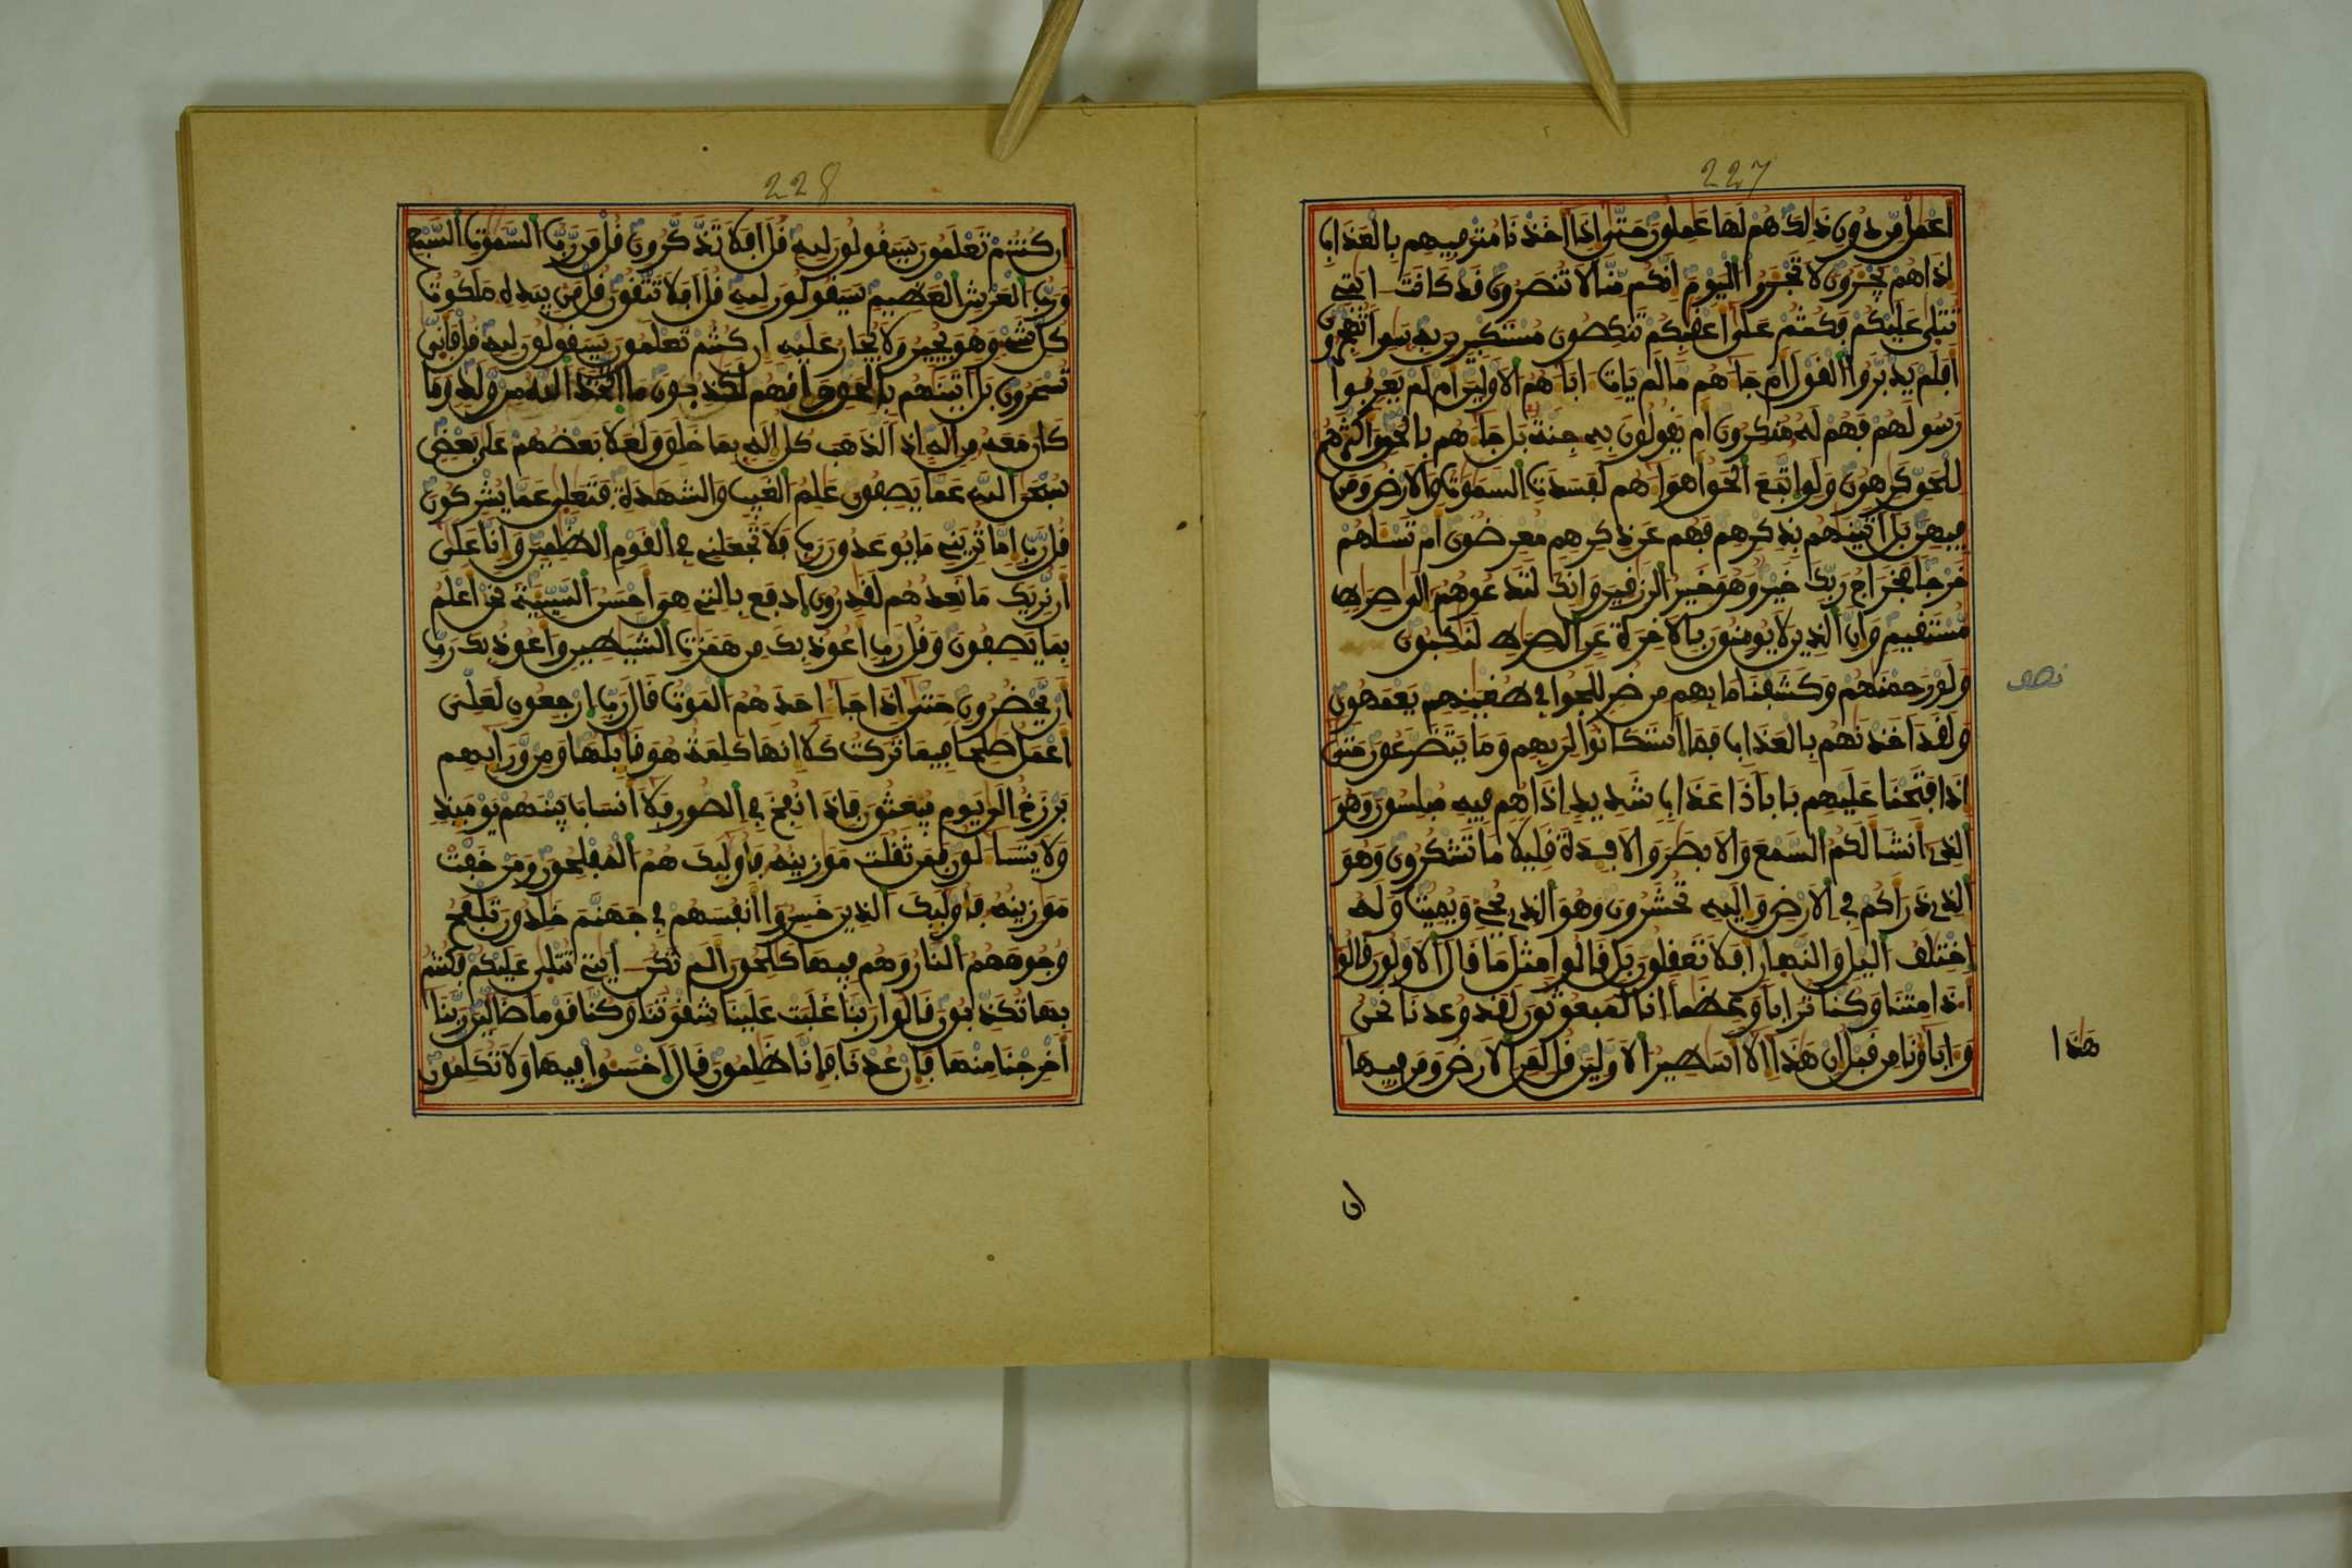 227
اعمل من دون ذلك هم لها عملون حتى اذا اخذنا مترفيهم بالعذاب
اذا هم يجرون لا تجروا اليوم انكم منا لا تنصرون قد كانت ايتي
تتلى عليكم فكنتم على اعقبكم تنكصون مستكبرين به سمرا تهجرون
افلم يدبروا القول ام جاهم ما لم يات اباهم الاولين ام لم يعرفوا
رسولهم فهم له منكرون ام يقولون به جنة بل جاهم بالحق واكثرهم
للحق كرهون ولو اتبع الحق اهواهم لفسدت السموت والارض ومن
فيهن بل اتينهم بذكرهم فهم عن ذكرهم معرضون ام تسلهم
خرجا فخراج ربك خير وهو خير الرزقين وانك لتدعوهم الى صرط
مستقيم وان الذين لا يومنون بالاخرة عن الصرط لنكبون
ولو رحمنهم وكشفنا ما بهم من ضر للجوا في طغينهم يعمهون
نصف
ولقد اخذنهم بالعذاب فما استكانوا لربهم وما يتضرعون حتى
اذا فتحنا عليهم بابا ذا عذاب شديد اذا هم فيه مبلسون وهو
الذي انشا لكم السمع والابصر والافدة قليلا ما تشكرون وهو
الذي ذراكم في الارض واليه تحشرون وهو الذي يحي ويميت وله
اختلف اليل والنهار افلا تعقلون بل قالوا مثل ما قال الاولون قالوا
اذا متنا وكنا ترابا وعظما انا لمبعوثون لقد وعدنا نحن
وابآونا من قبل ان هذا الا اسطير الاولين قل لمن الارض ومن فيها
هذا
ان
228
ان كنتم تعلمون سيقولون لله قل افلا تذكرون قل من رب السموت السبع
ورب العرش العظيم سيقولون لله قل افلا تتقون قل من بيده ملكوت
كل شيء وهو يجير ولا يجار عليه ان كنتم تعلمون سيقولون لله قل فانى
تسحرون بل اتينهم بالحق وانهم لكذبون ما اتخذ الله من ولد وما
كان معه من اله اذا لذهب كل اله بما خلق ولعلا بعضهم على بعض
سبحن الله عما يصفون علم الغيب والشهدة فتعلى عما يشركون
قل رب اما تريني ما يوعدون رب فلا تجعلني في القوم الظلمين وانا على
ان نريك ما نعدهم لقدرون ادفع بالتي هي احسن السيية نحن اعلم
بما يصفون وقل رب اعوذ بك من همزت الشيطين واعوذ بك رب
ان يحضرون حتى اذا جا احدهم الموت قال رب ارجعون لعلي
اعمل صلحا فيما تركت كلا انها كلمة هو قايلها ومن ورايهم
برزخ الى يوم يبعثون فاذا نفخ في الصور فلا انساب بينهم يوميذ
ولا يتسالون فمن ثقلت موزينه فاوليك هم المفلحون ومن خفت
موزينه فاوليك الذين خسروا انفسهم في جهنم خلدون تلفح
وجوههم النار وهم فيها كلحون الم تكن ايتي تتلى عليكم فكنتم
بها تكذبون قالوا ربنا غلبت علينا شقوتنا وكنا قوما ضالين ربنا
اخرجنا منها فان عدنا فانا ظلمون قال اخسوا فيها ولا تكلمون